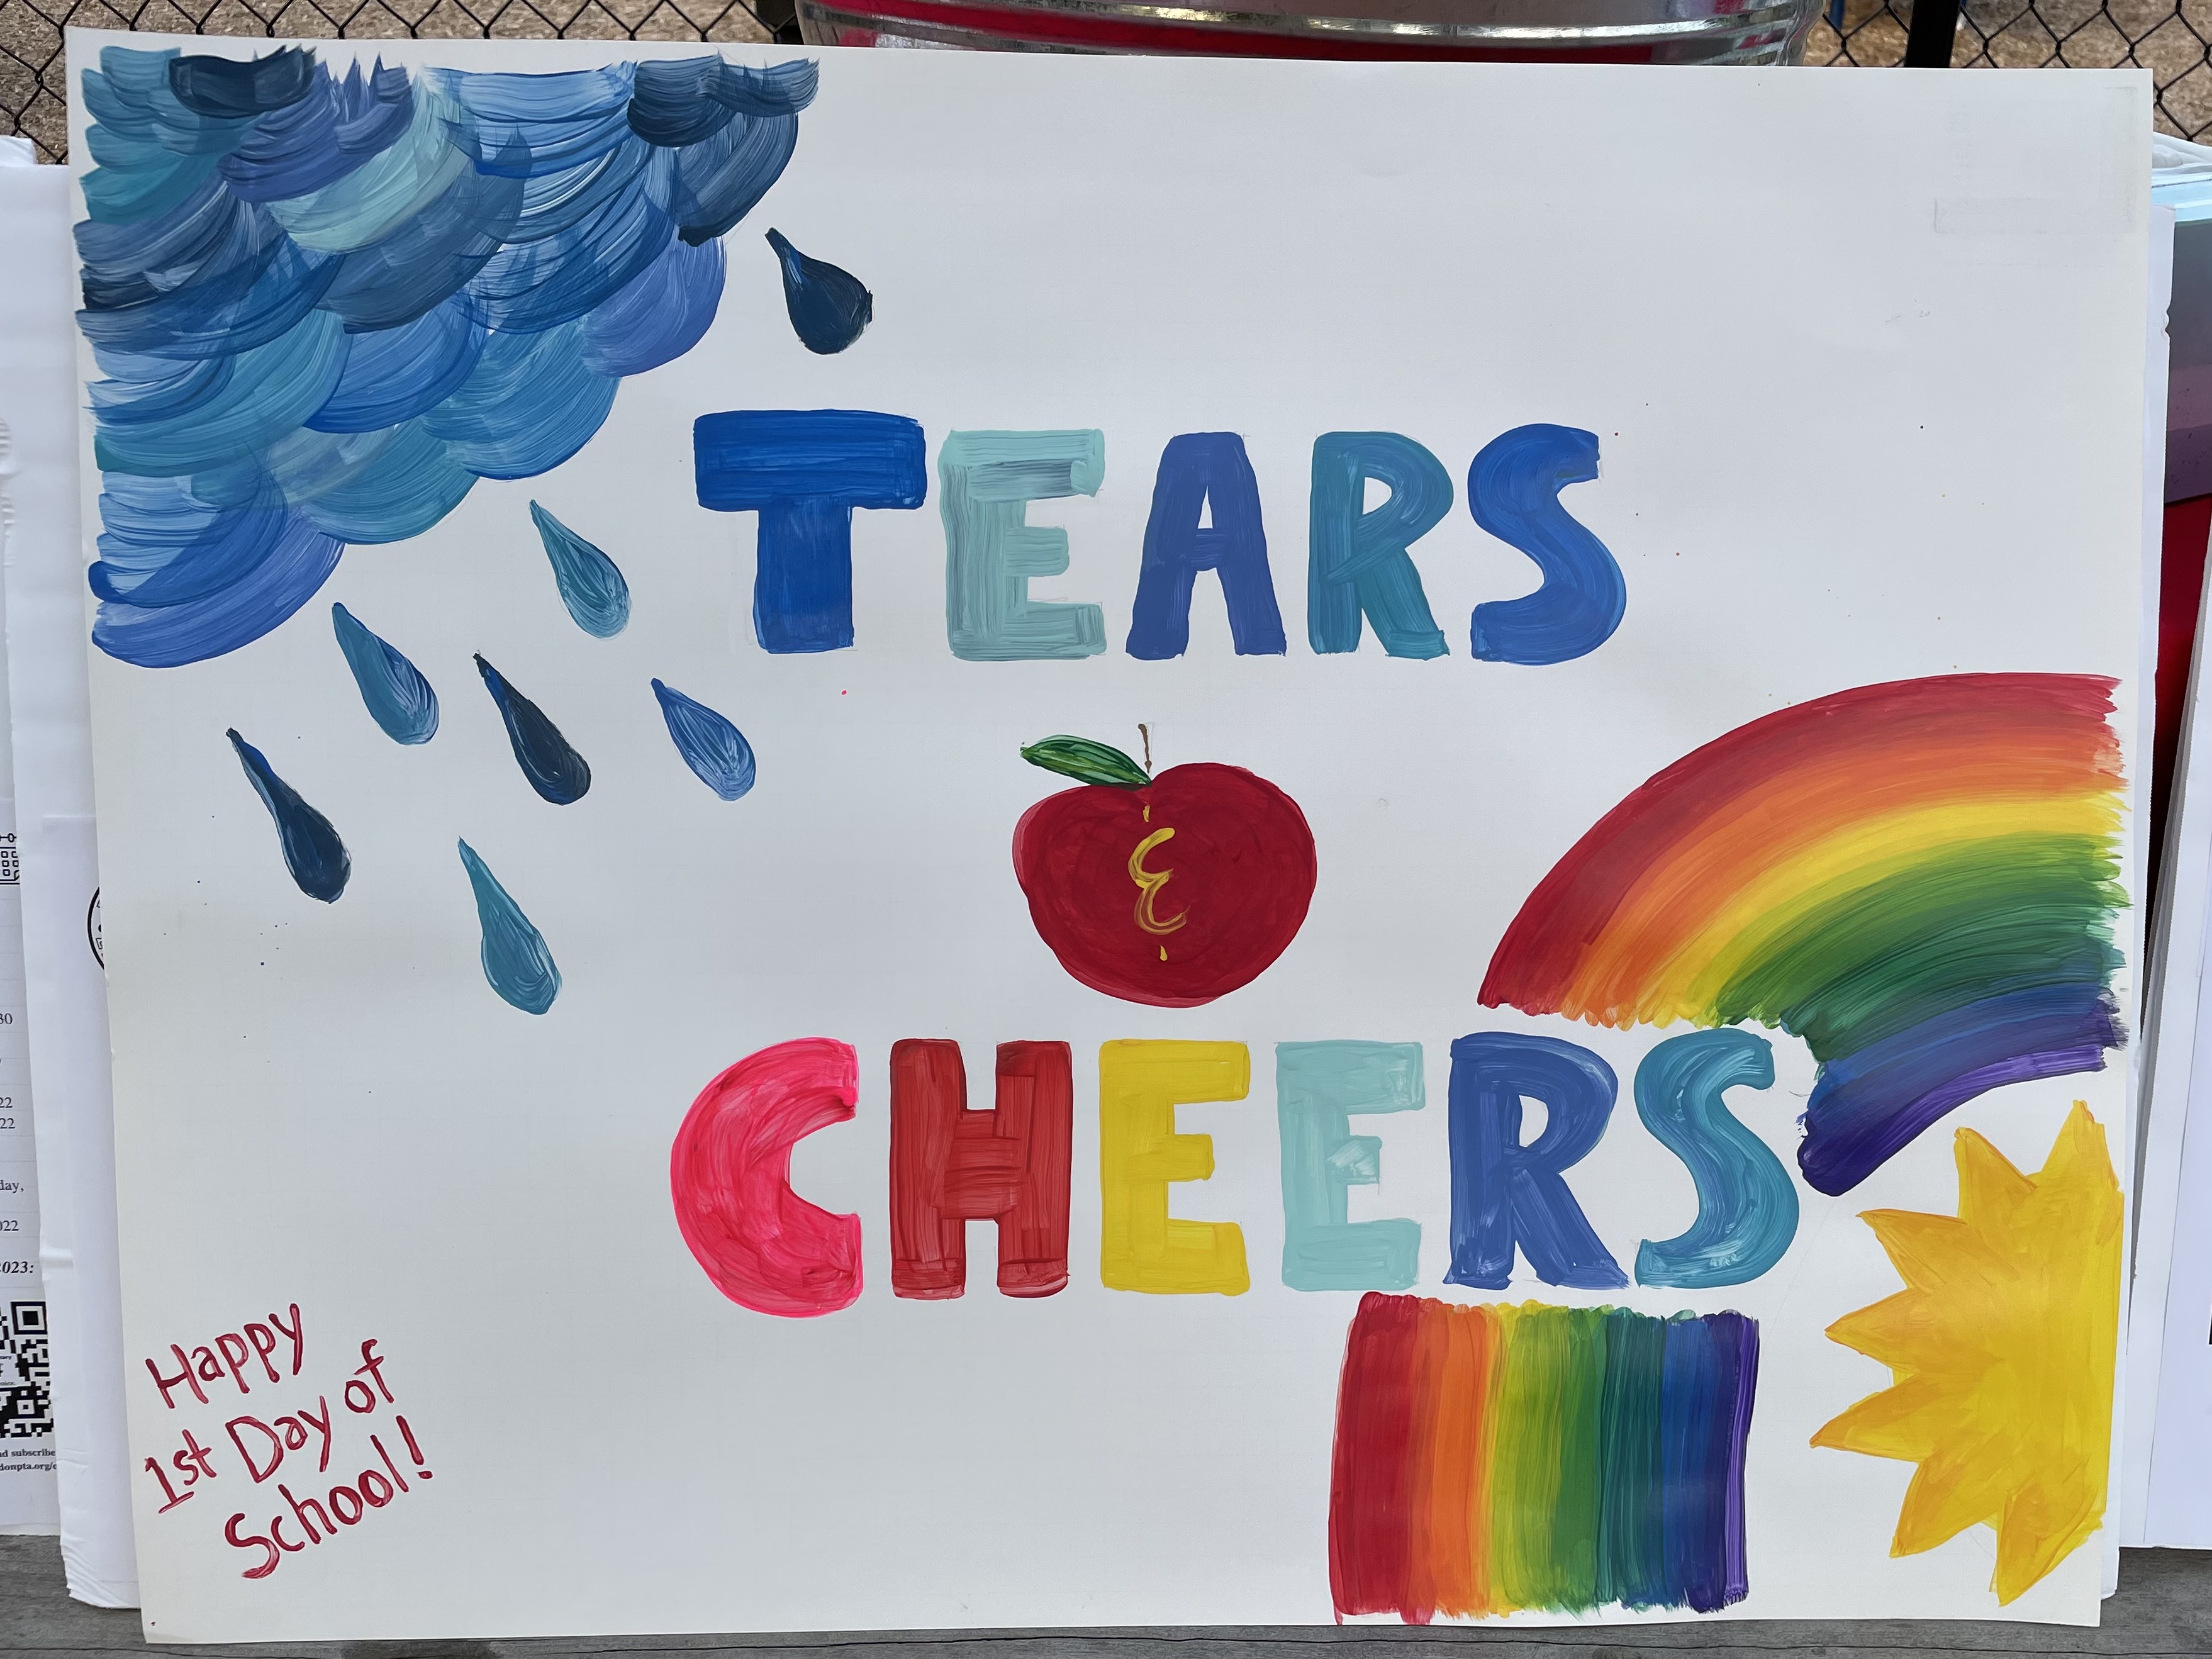 TEARS
&
CHEERS
Happy
1st Day of
School!
30
22
22
day,
022
2023:
nd subscribe
donpta.org/